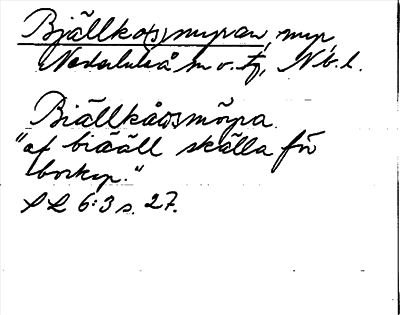 Bjällkosmyran, myr,
Nederluleå sn v. tj, Nb. l.
Biällkåosmöyra
"af biääll skälla för
boskap."
SL 6:3 s. 27.